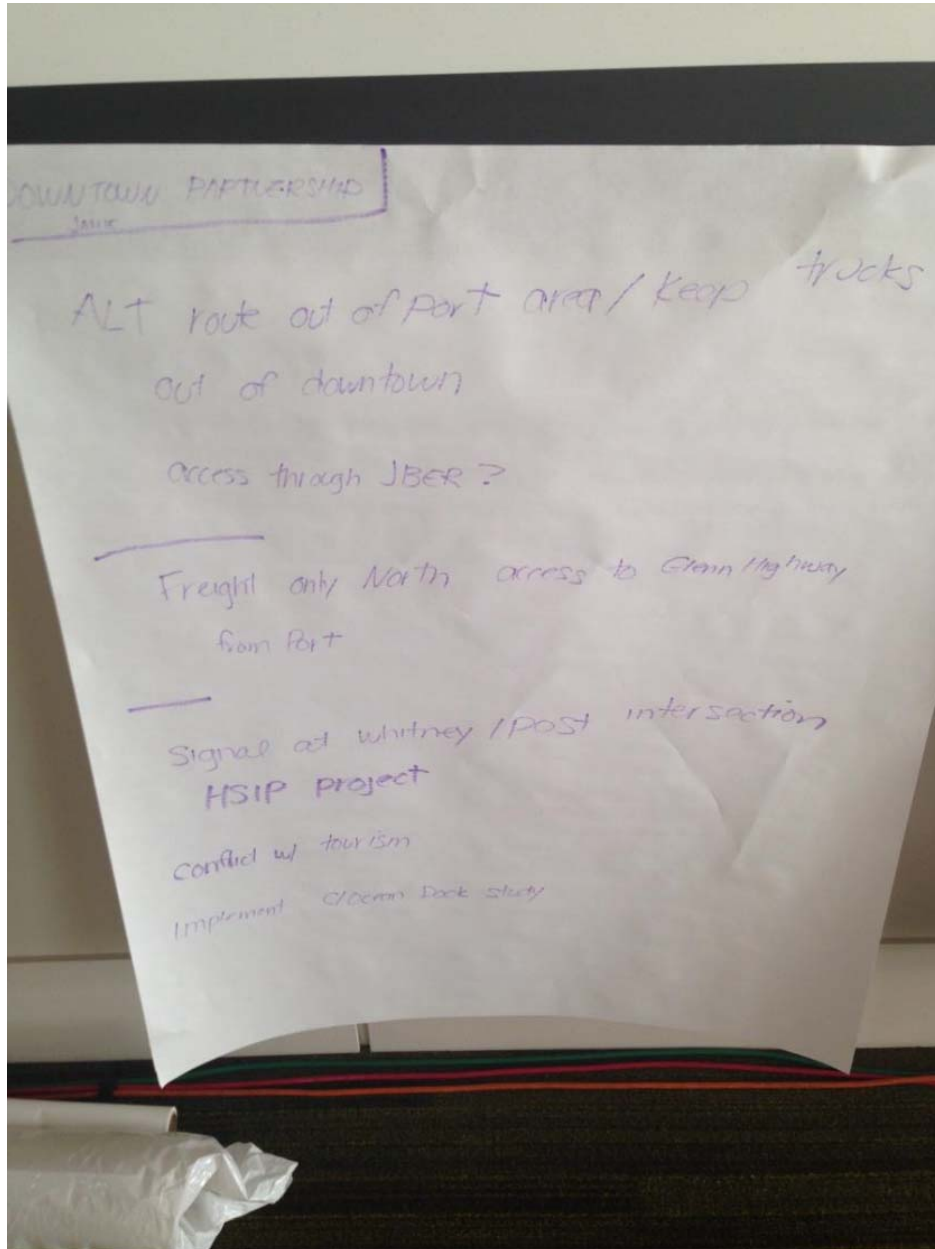 DOWNTOWN PARTNERSHIP
ALT route out of Port area / Keep trucks
out of downtown
access through JBER?
Freight only North access to Glenn Highway
from Port
Signal at Whitney / Post intersection
HSIP project
Conflict w/ tourism
Implement C/Ocean Dock study